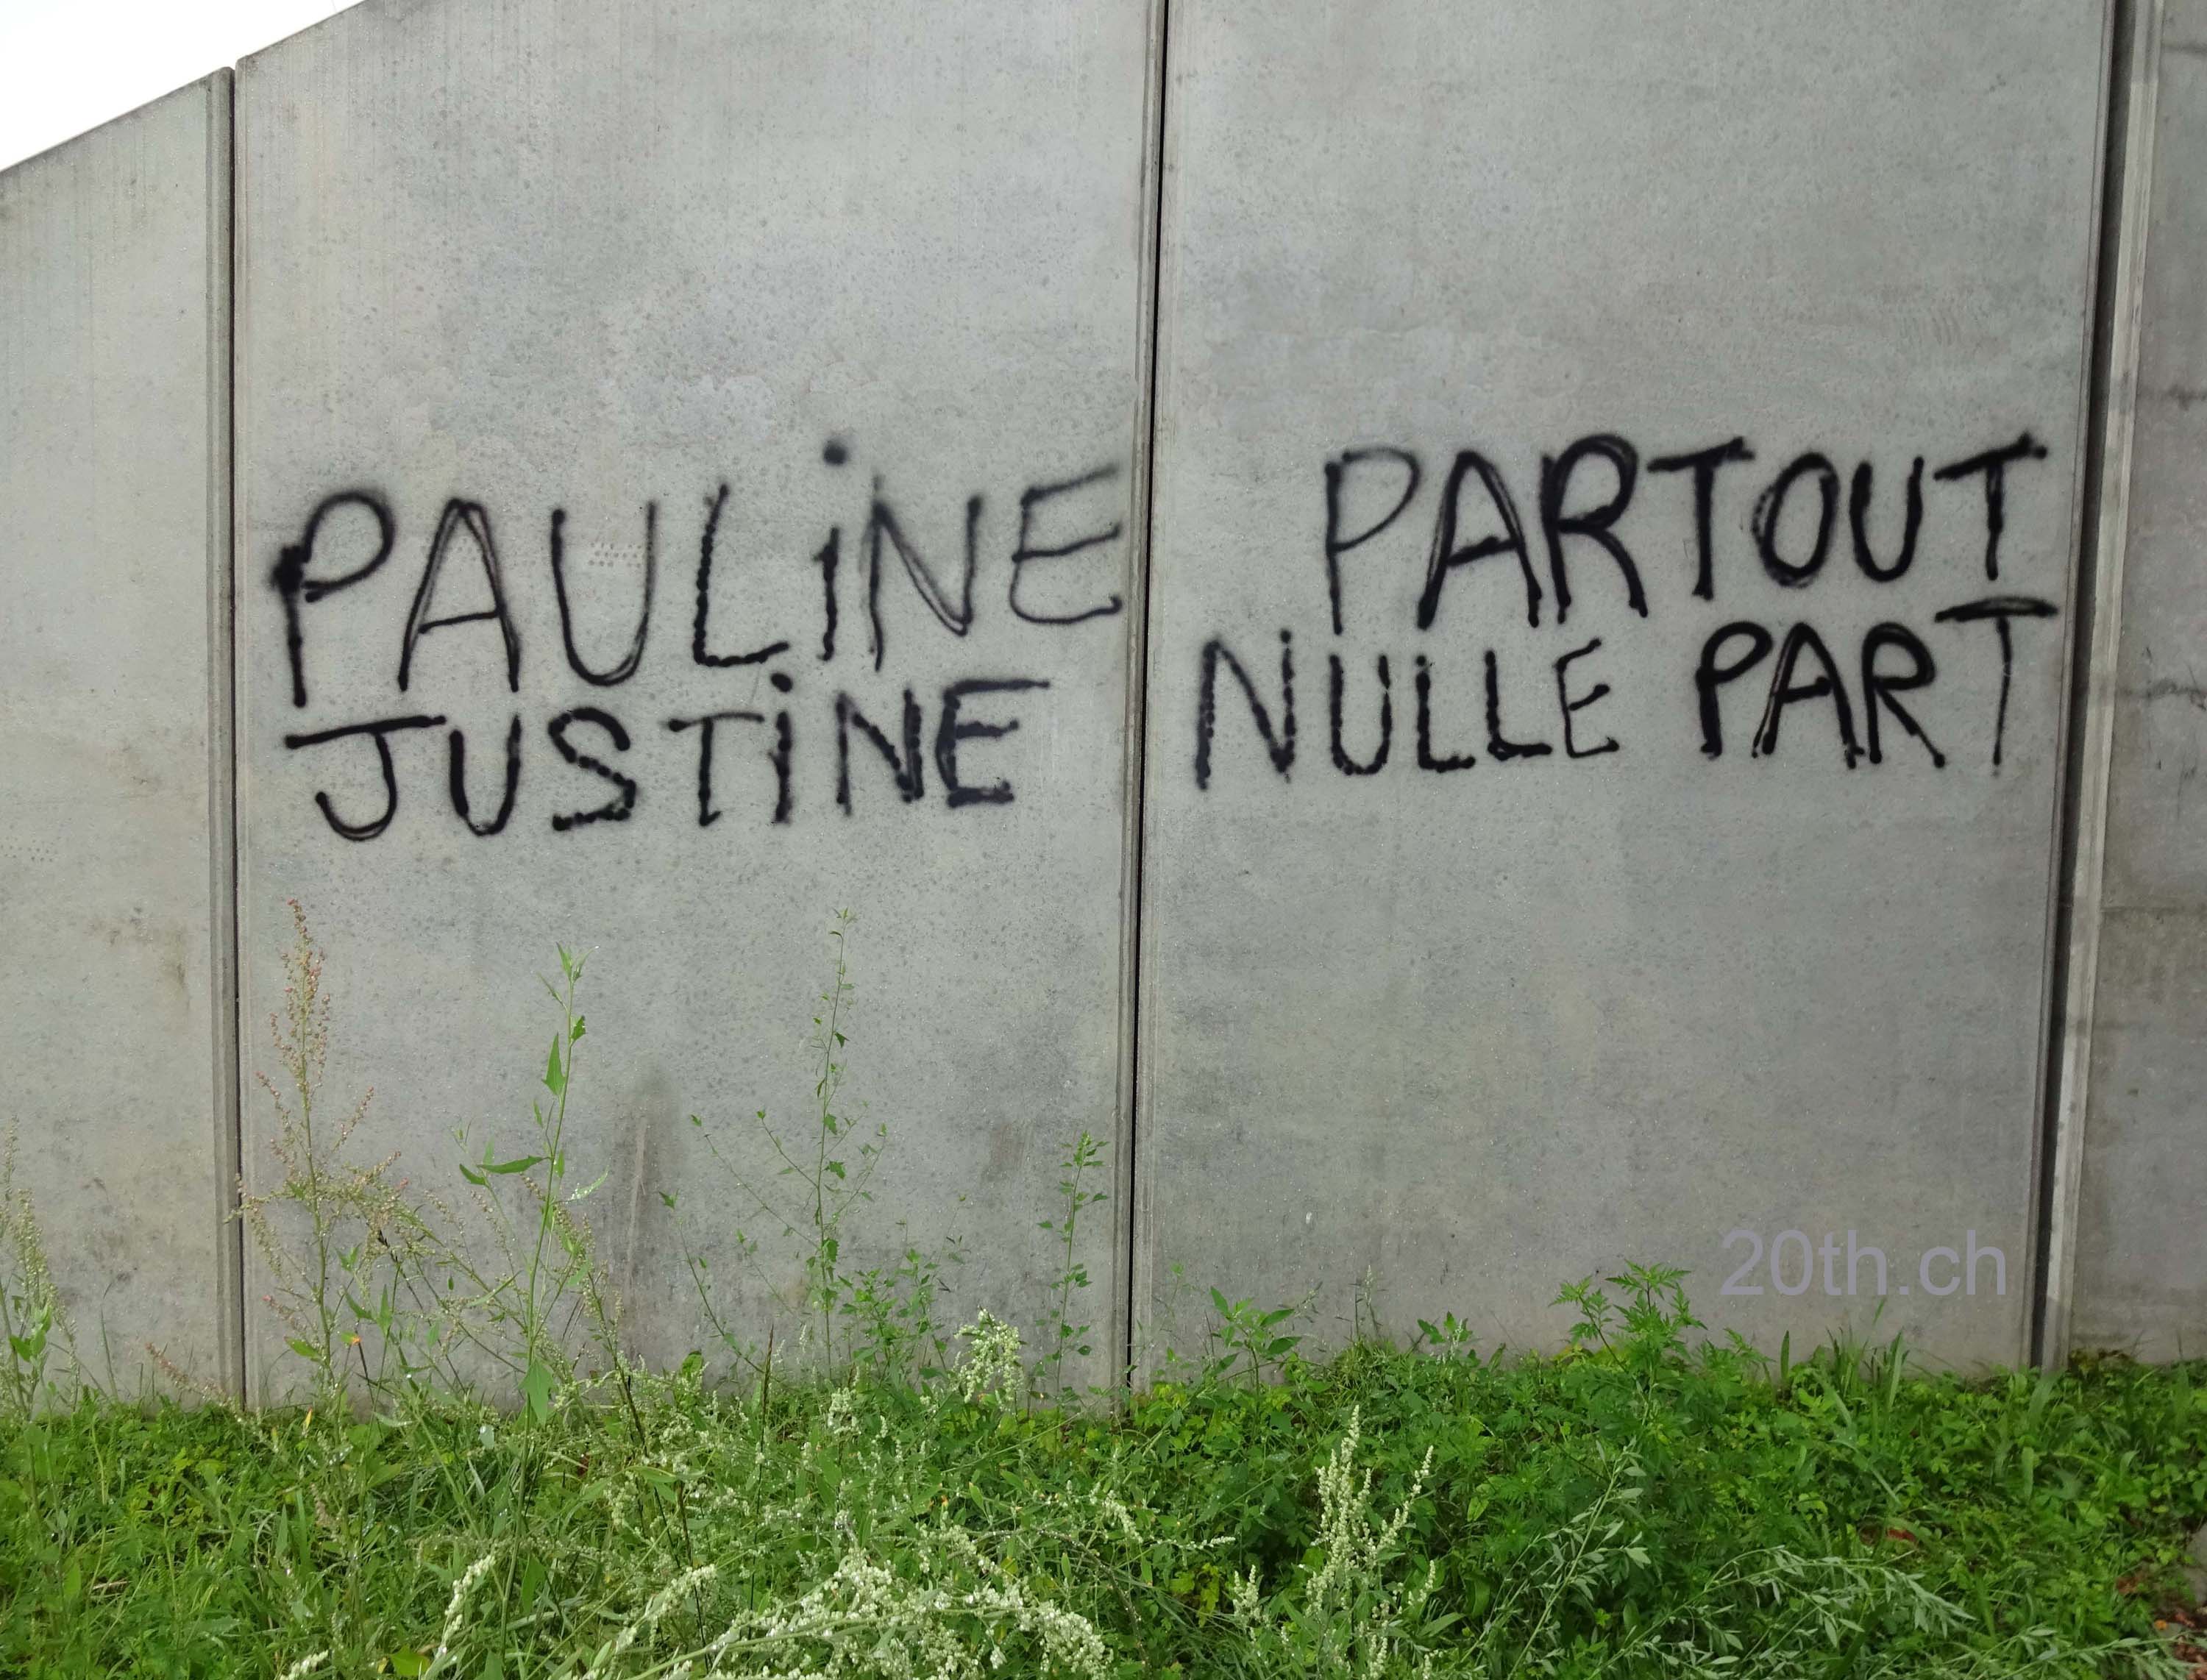 PAULiNE PARTOUT
JUSTiNE NULLE PART
20th.ch